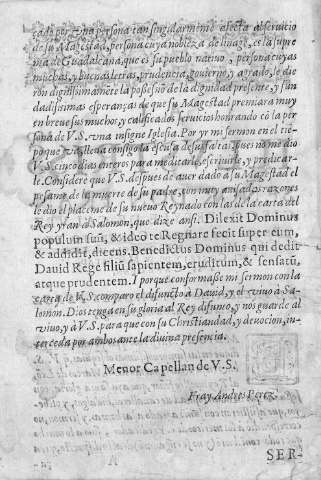 cado por vna persona tan singularmente afecta al seruicio
de su Magestad, persona cuya nobleza de linage, es la supre
ma de Guadalcana, que es su pueblo natiuo, persona cuyas
muchas, y buenas letras, prudencia, gouierno, y agrado, le die
ron dignissimamente la possession de la dignidad presente, y fun
dadissimas esperanças de que su Magestad premiara muy
en breue sus muchos, y calificados seruicios honrando cõ la per
sona de V.S. vna insigne Iglesia. Por yr mi sermon en el tiẽ-
po que
cinco dias enteros para meditarle, escriuirle, y predicar-
le. Considerè que V.S. despues de auer dado a su Magestad el
pesame de la muerte de su padre, con muy auisadas razones
le dio el plazeme de su nueuo Reynado con las de la carta del
Rey yran a Salomon, que dize ansi. Dilexit Dominus
populum suũ, & ideo te Regnare fecit super eum,
& addidit, dicens. Benedictus Dominus qui dedit
Dauid Regẽ filiũ sapientem, eruditum, & sensatũ,
atque prudentem. I porque conformasse mi sermon con la
carta de V.S. comparo el difuncto a Dauid, y el viuo à Sa-
lomon. Dios tenga en su gloria al Rey difunto, y nos guarde al
viuo, y à V.S. para que con su Christiandad, y deuocion, in-
terceda por ambos ante la diuina presencia.
Menor Capellan de V.S.
Fray Andres Perez.
SER-